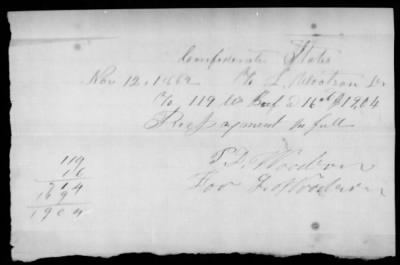 Confederate States
Nov 12, 1862 To L. Woodson Dr
To 119 lbs Beef @ 16 cts $19.04
Rec payment in full
T. D. Woodson
For L. Woodson
119
16
714
119
1904